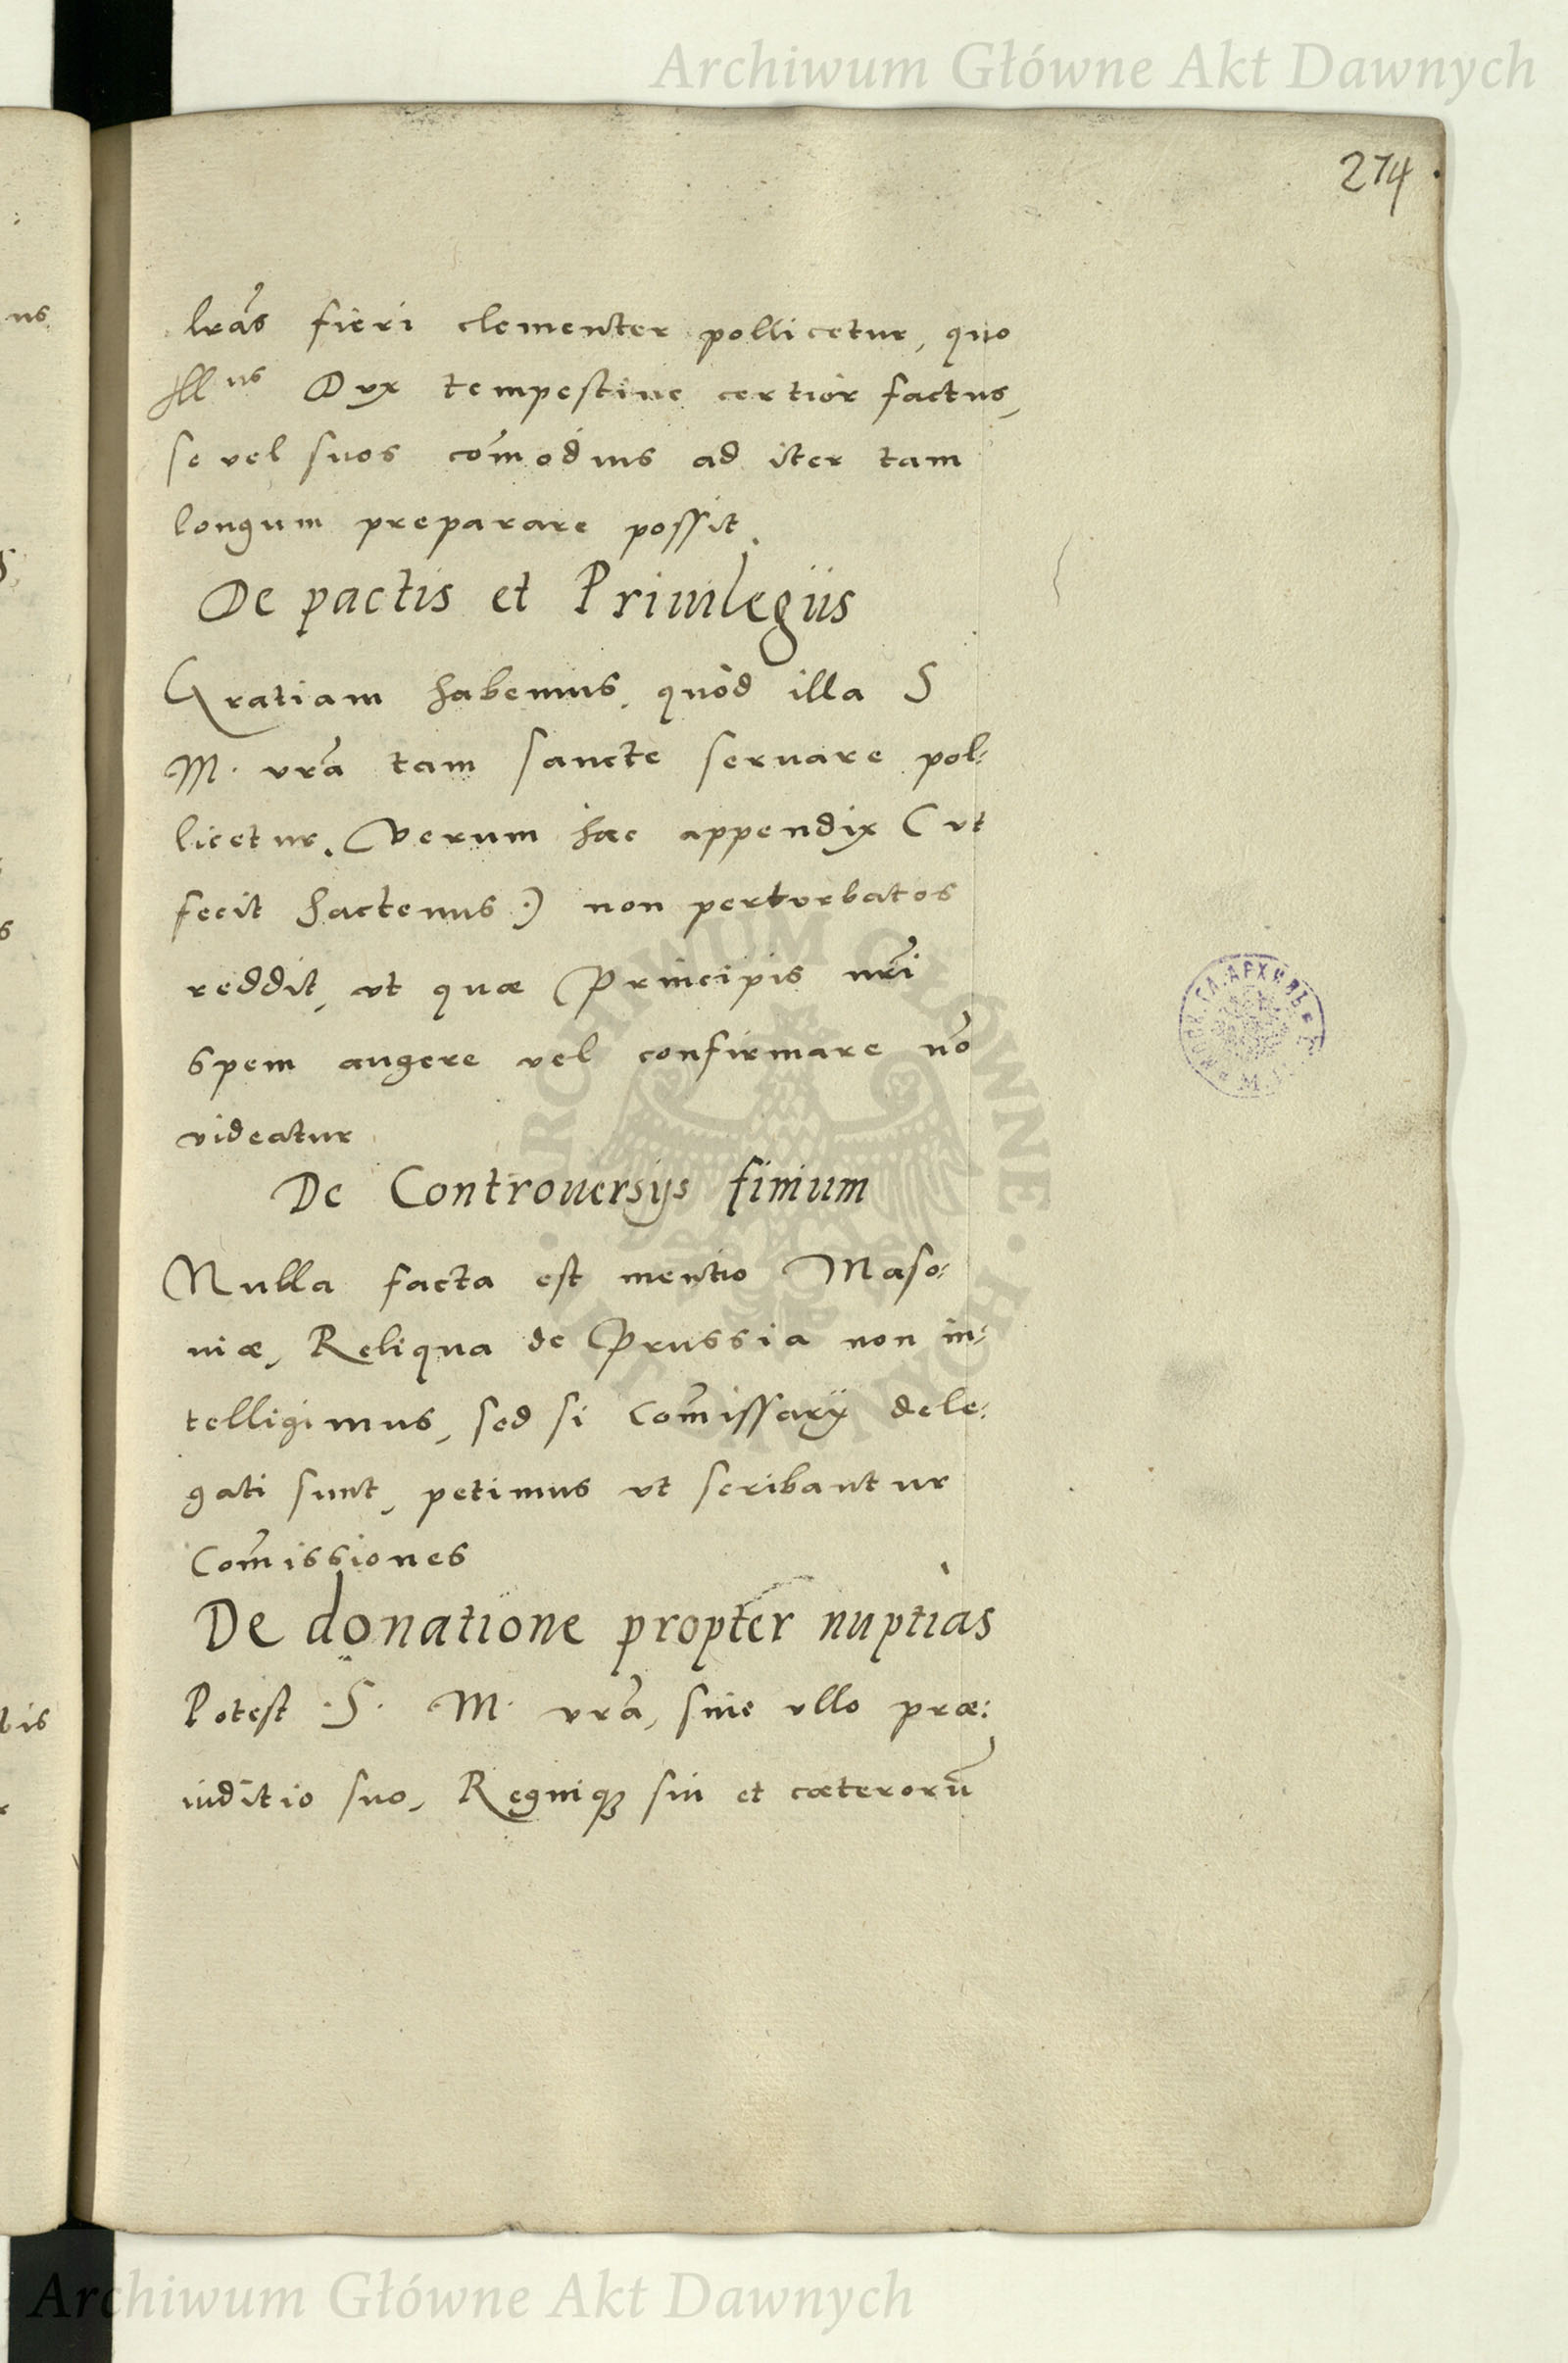 Archiwum Główne Akt Dawnych
274
lr̃as fieri clementer pollicetur, quo
Ill^us Dux tempestiue certior factus,
se vel suos com̃odius ad iter tam
longum preparare possit.
De pactis et Priuilegiis
Gratiam habemus, quòd illa S
M. vr̃a tam sancte seruare pol:
licetur. Verum hæc appendix (vt
fecit hactenus.) non perturbatos
reddit, vt quæ Principis nr̃i
spem augere vel confirmare nõ
videatur
De Controuersijs finium
Nulla facta est mentio Maso:
uiæ, Reliqua de Prussia non in:
telligimus, sed si Com̃issarij dele:
gati sunt, petimus vt scribantur
Com̃issiones
De donatione propter nuptias
Potest .S. M. vr̃a, sine ullo præ:
iuditio suo, Regniq; sui et cæterorũ
ARCHIWUM GŁÓWNE AKT DAWNYCH
Archiwum Główne Akt Dawnych